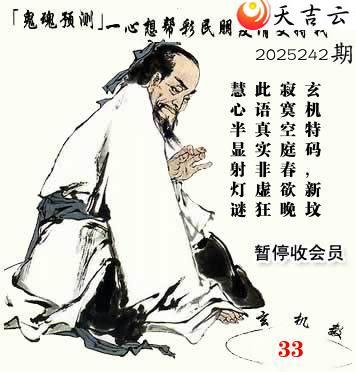 天吉云
「鬼魂预测」一心想帮彩民朋友
2025242期
玄机特码，新坟
寂寞空庭春欲晚
此语真实非虚狂
慧心半显射灯谜
暂停收会员
玄机数
33